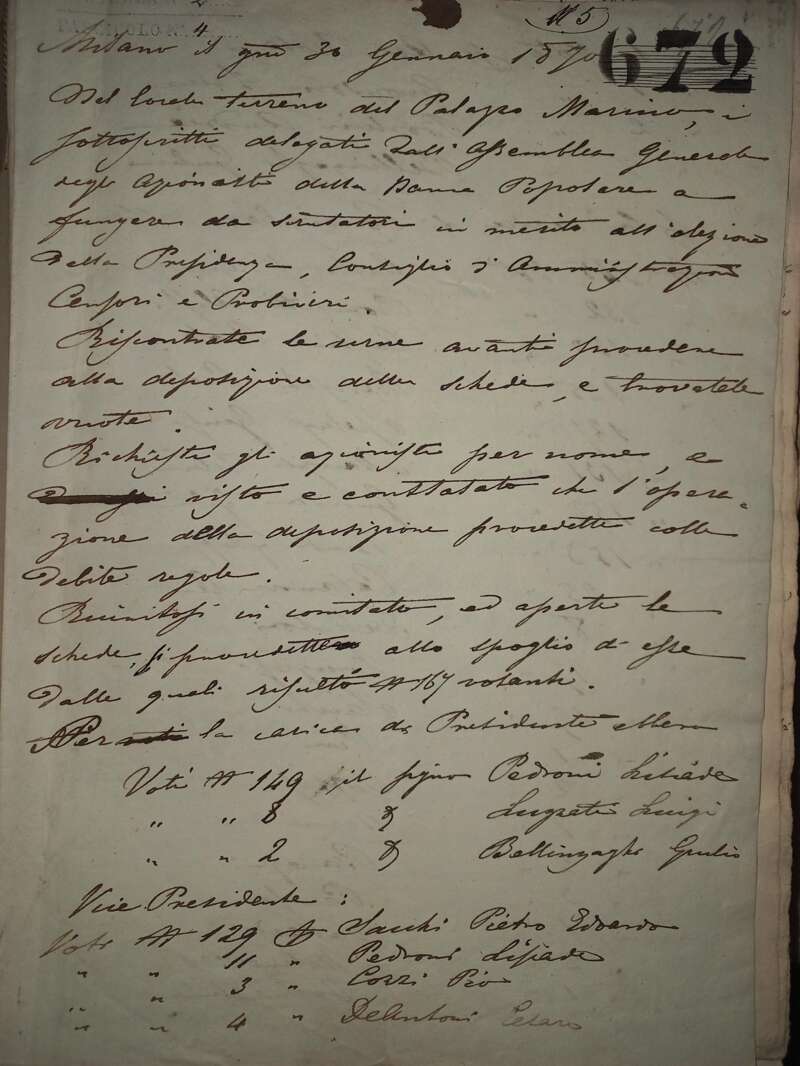 N 5
672
Milano il gno 30 Gennaio 1870
Nel locale terreno del Palazzo Marino, i
sottoscritti delegati dall'Assemblea Generale
degli Azionisti della Banca Popolare a
fungere da scrutatori in merito all'elezione
della Presidenza, Consiglio d'Amministrazione
Censori e Probiviri.
Riscontrate le urne avanti procedere
alla deposizione delle schede, e trovatele
vuote.
Richiesti gli azionisti per nome, e
visto e constatato che l'opera-
zione della deposizione procedette colle
debite regole.
Riunitosi in comitato, ed aperte le
schede, si procedette allo spoglio di esse
dalle quali risultò N 167 votanti.
Per la carica di Presidente ebbero
Voti N 149 il signor Pedroni Lisiade
" " 8 " Luzzati Luigi
" " 2 " Bellinzaghi Giulio
Vice Presidente :
Voti N 129 Sacchi Pietro Edoardo
" " 11 " Pedroni Lisiade
" " 3 " Cozzi Pio
" " 4 " DeAntoni Cesare